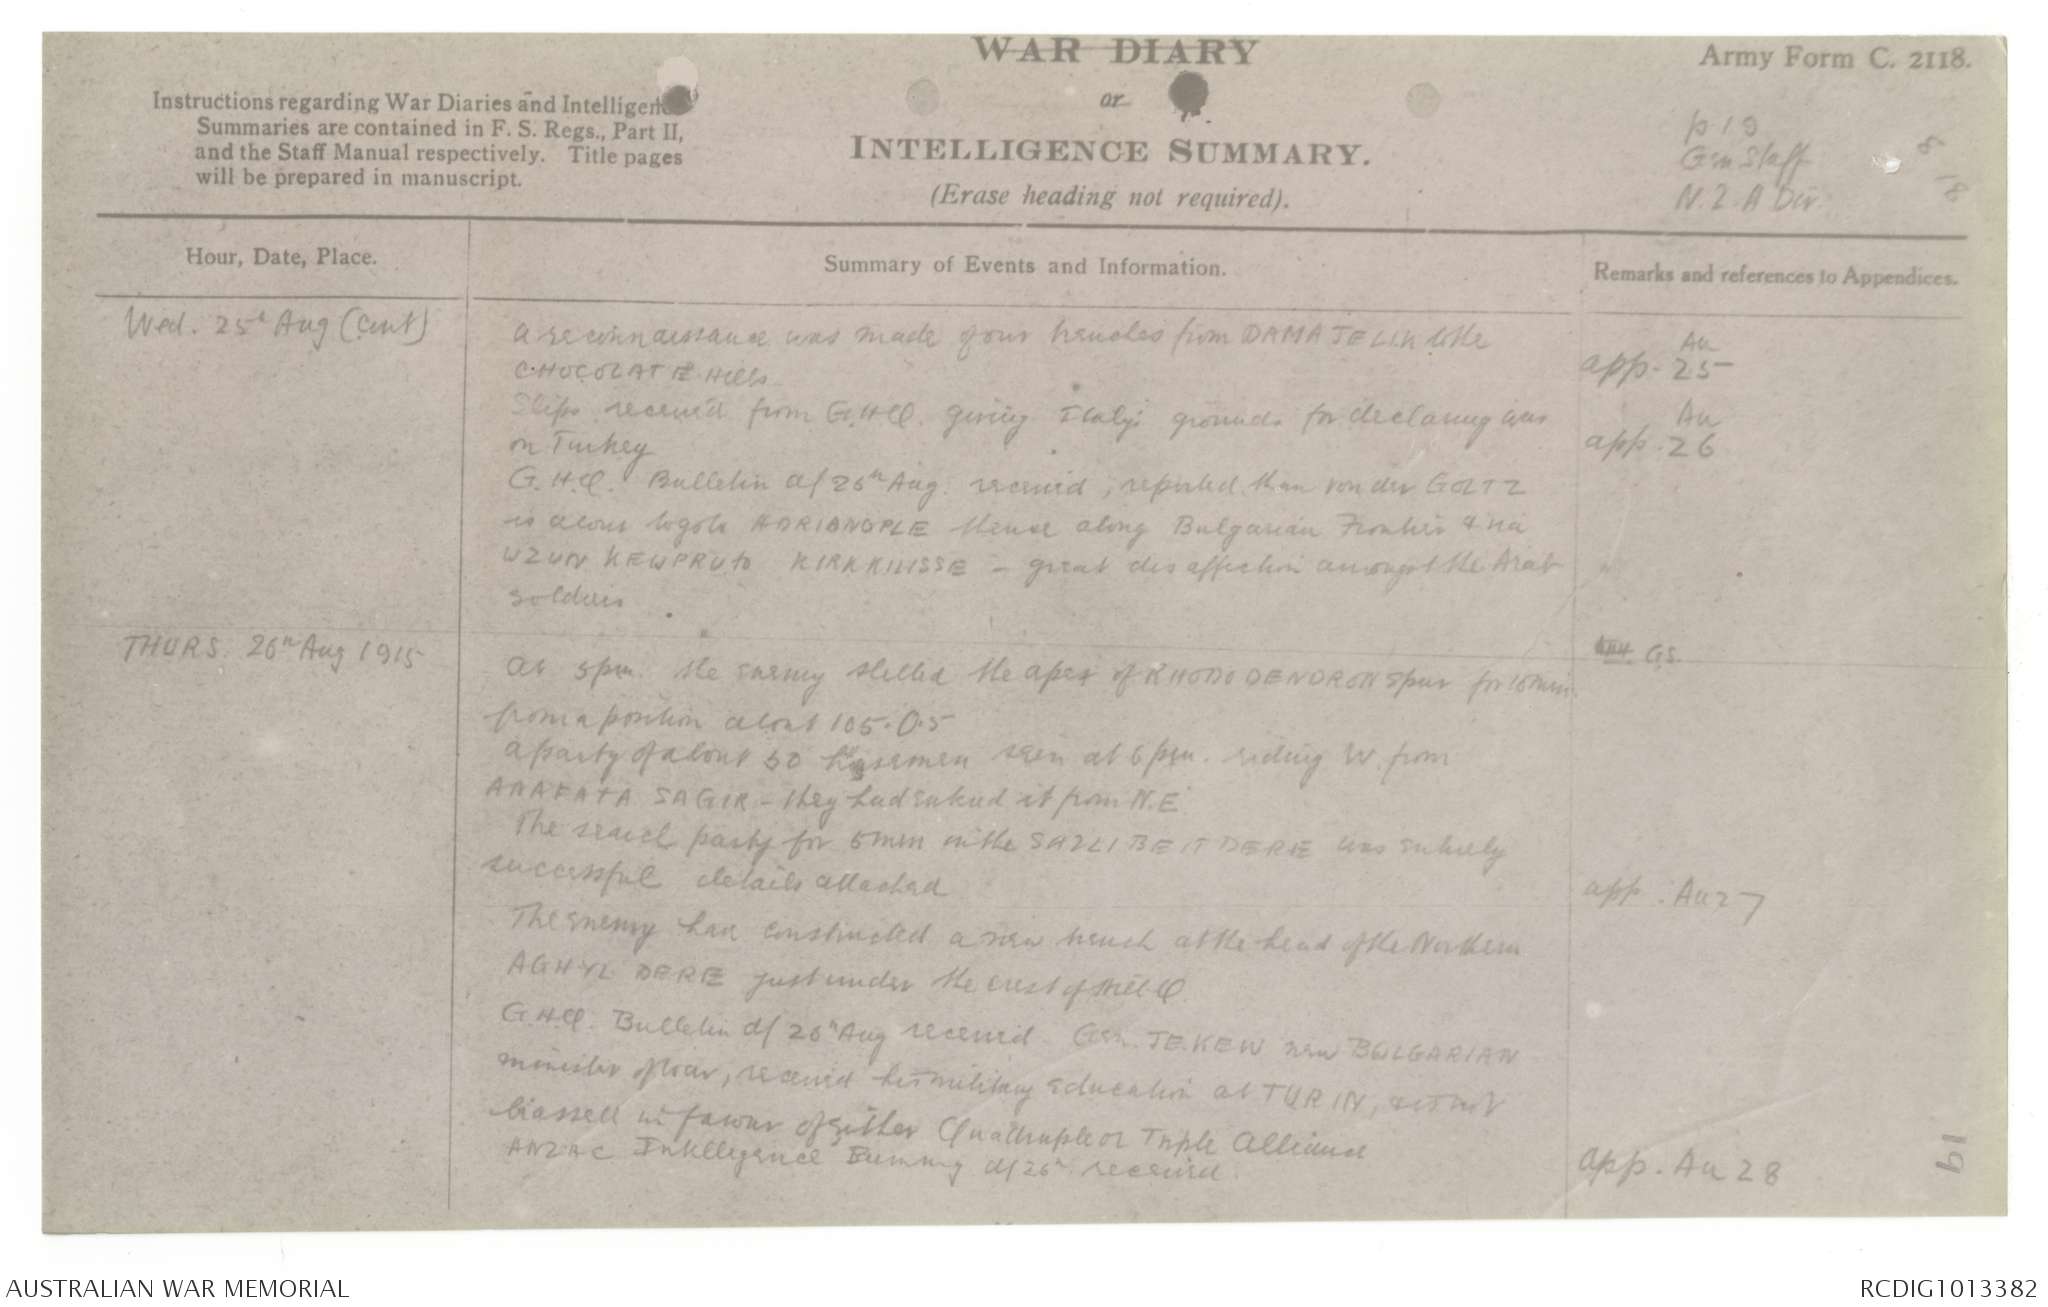 WAR DIARY
or
INTELLIGENCE SUMMARY.
(Erase heading not required).
Army Form C. 2118.
Instructions regarding War Diaries and Intelligence
Summaries are contained in F. S. Regs., Part II,
and the Staff Manual respectively. Title pages
will be prepared in manuscript.
p 19
Gen Staff
N.Z. A Div.
Hour, Date, Place.
Summary of Events and Information.
Remarks and references to Appendices.
Wed. 25th Aug (Cont)
A reconnaissance was made of our trenches from DAMAJELIK to the
CHOCOLATE Hills
Au
app. 25
Slips received from G.H.Q. giving Italy's grounds for declaring war
on Turkey
Au
app. 26
G.H.Q. Bulletin d/ 25th Aug. received, reported than von der GOLTZ
is about to go to ADRIANOPLE thence along Bulgarian Frontier & via
UZUN KEWPRU to KIRKKILISSE - great disaffection amongst the Arab
soldiers
THURS. 26th Aug 1915
G.S.
At 5pm. the enemy shelled the apex of RHODODENDRON Spur for 15 min.
from a position about 105.O.5
A party of about 50 horsemen seen at 6 pm. riding W. from
ANAFATA SAGIR - they had entered it from N.E.
The search party for men in the SAZLI BEIT DERE was entirely
successful details attached
app. Au 27
The enemy have constructed a new trench at the head of the Northern
AGHYL DERE just under the crest of Hill Q.
G.H.Q. Bulletin d/ 26th Aug received Gen. JEKEW new BULGARIAN
minister of war, received his military education at TURIN, & is not
biassed in favour of either Quadruple or Triple Alliance
ANZAC Intelligence Summary d/26th received.
app. Au 28
19
AUSTRALIAN WAR MEMORIAL
RCDIG1013382